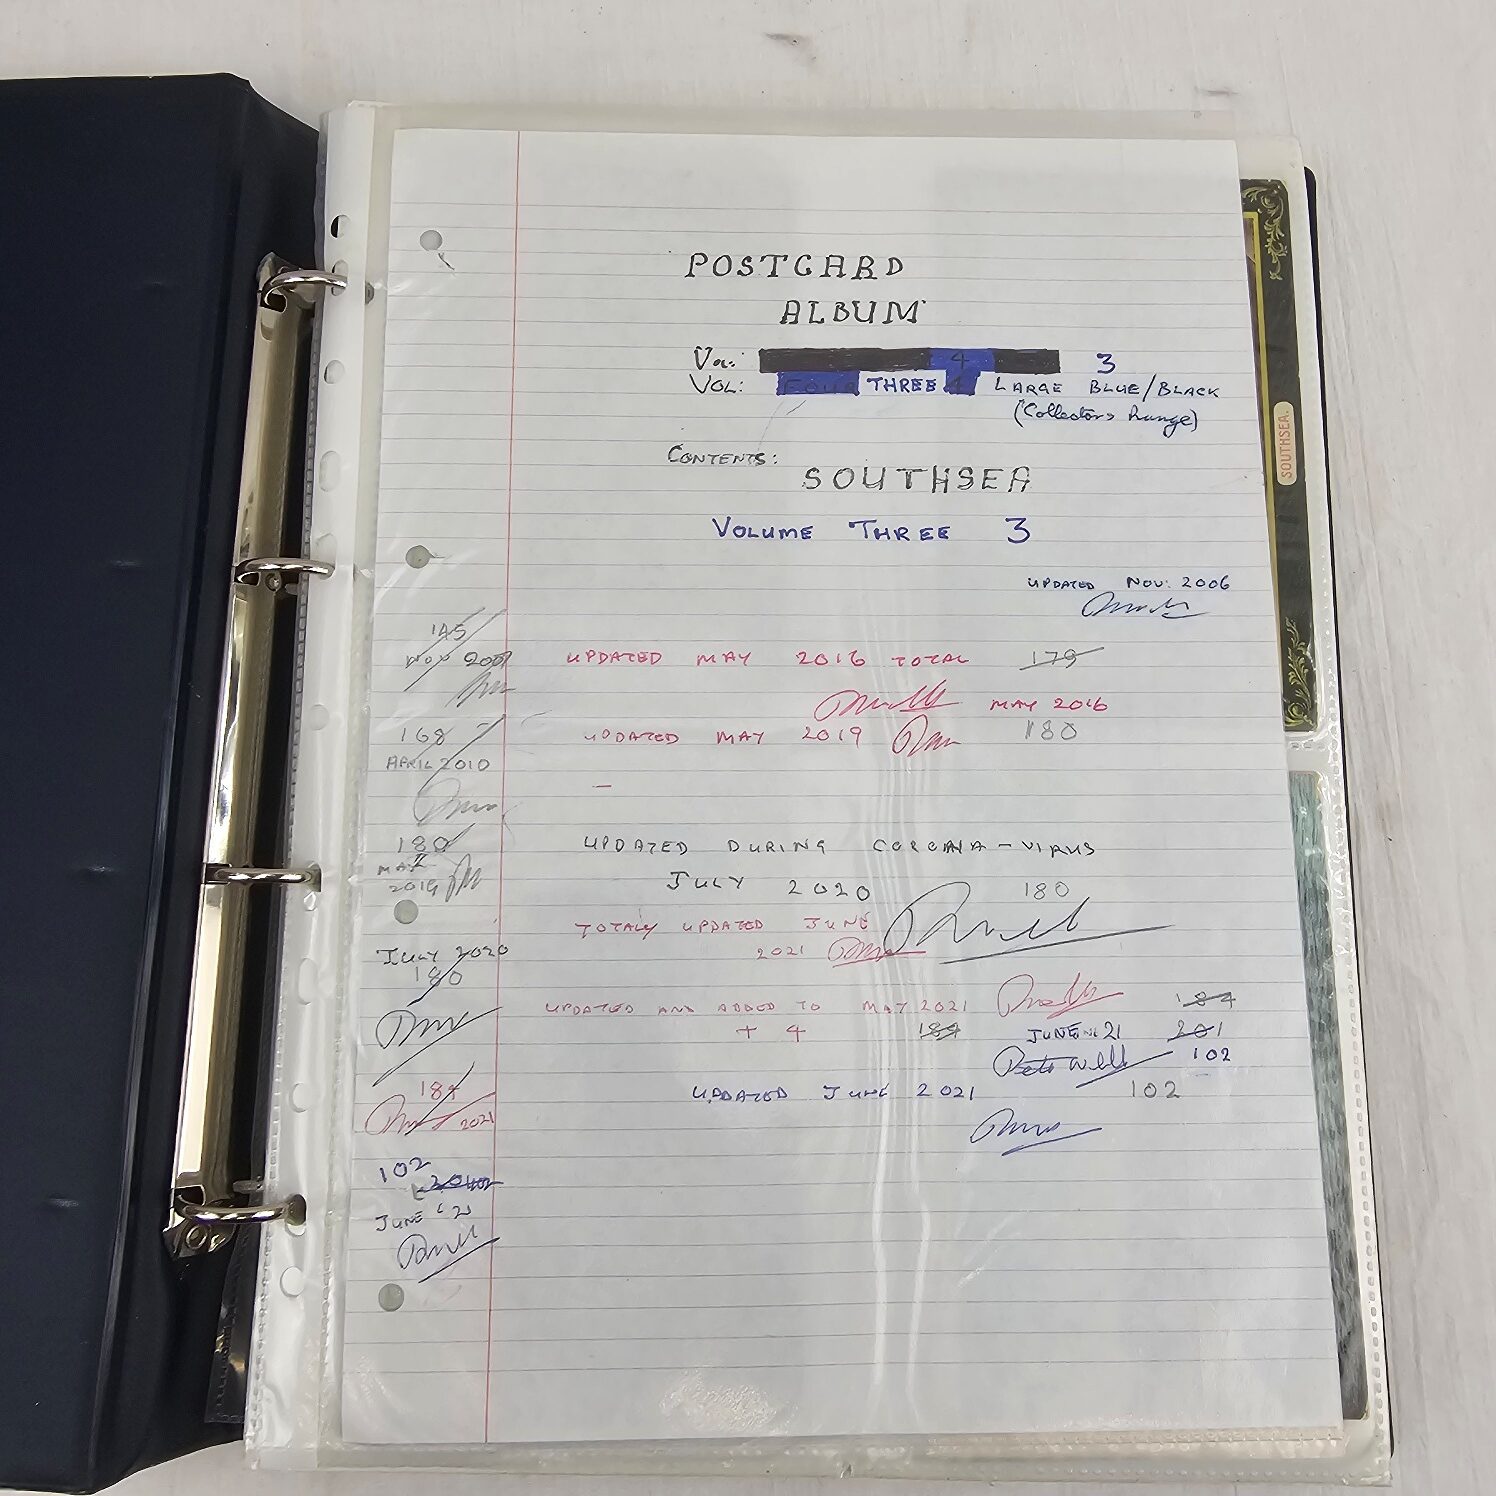 POSTCARD
ALBUM
VOL: 4 3
VOL: FOUR THREE LARGE BLUE/BLACK
(Collectors Range)
CONTENTS:
SOUTHSEA
VOLUME THREE 3
UPDATED NOV: 2006
145
NOV 2009
UPDATED MAY 2016 TOTAL 179
MAY 2016
168
UPDATED MAY 2019 180
APRIL 2010
180
MAY
2019
UPDATED DURING CORONA-VIRUS
JULY 2020 180
TOTALY UPDATED JUNE
2021
JULY 2020
180
UPDATED AND ADDED TO MAY 2021 184
+ 4 184 JUNE 21 201
102
UPDATED JUNE 2021 102
184
2021
102
JUNE '21
SOUTHSEA.